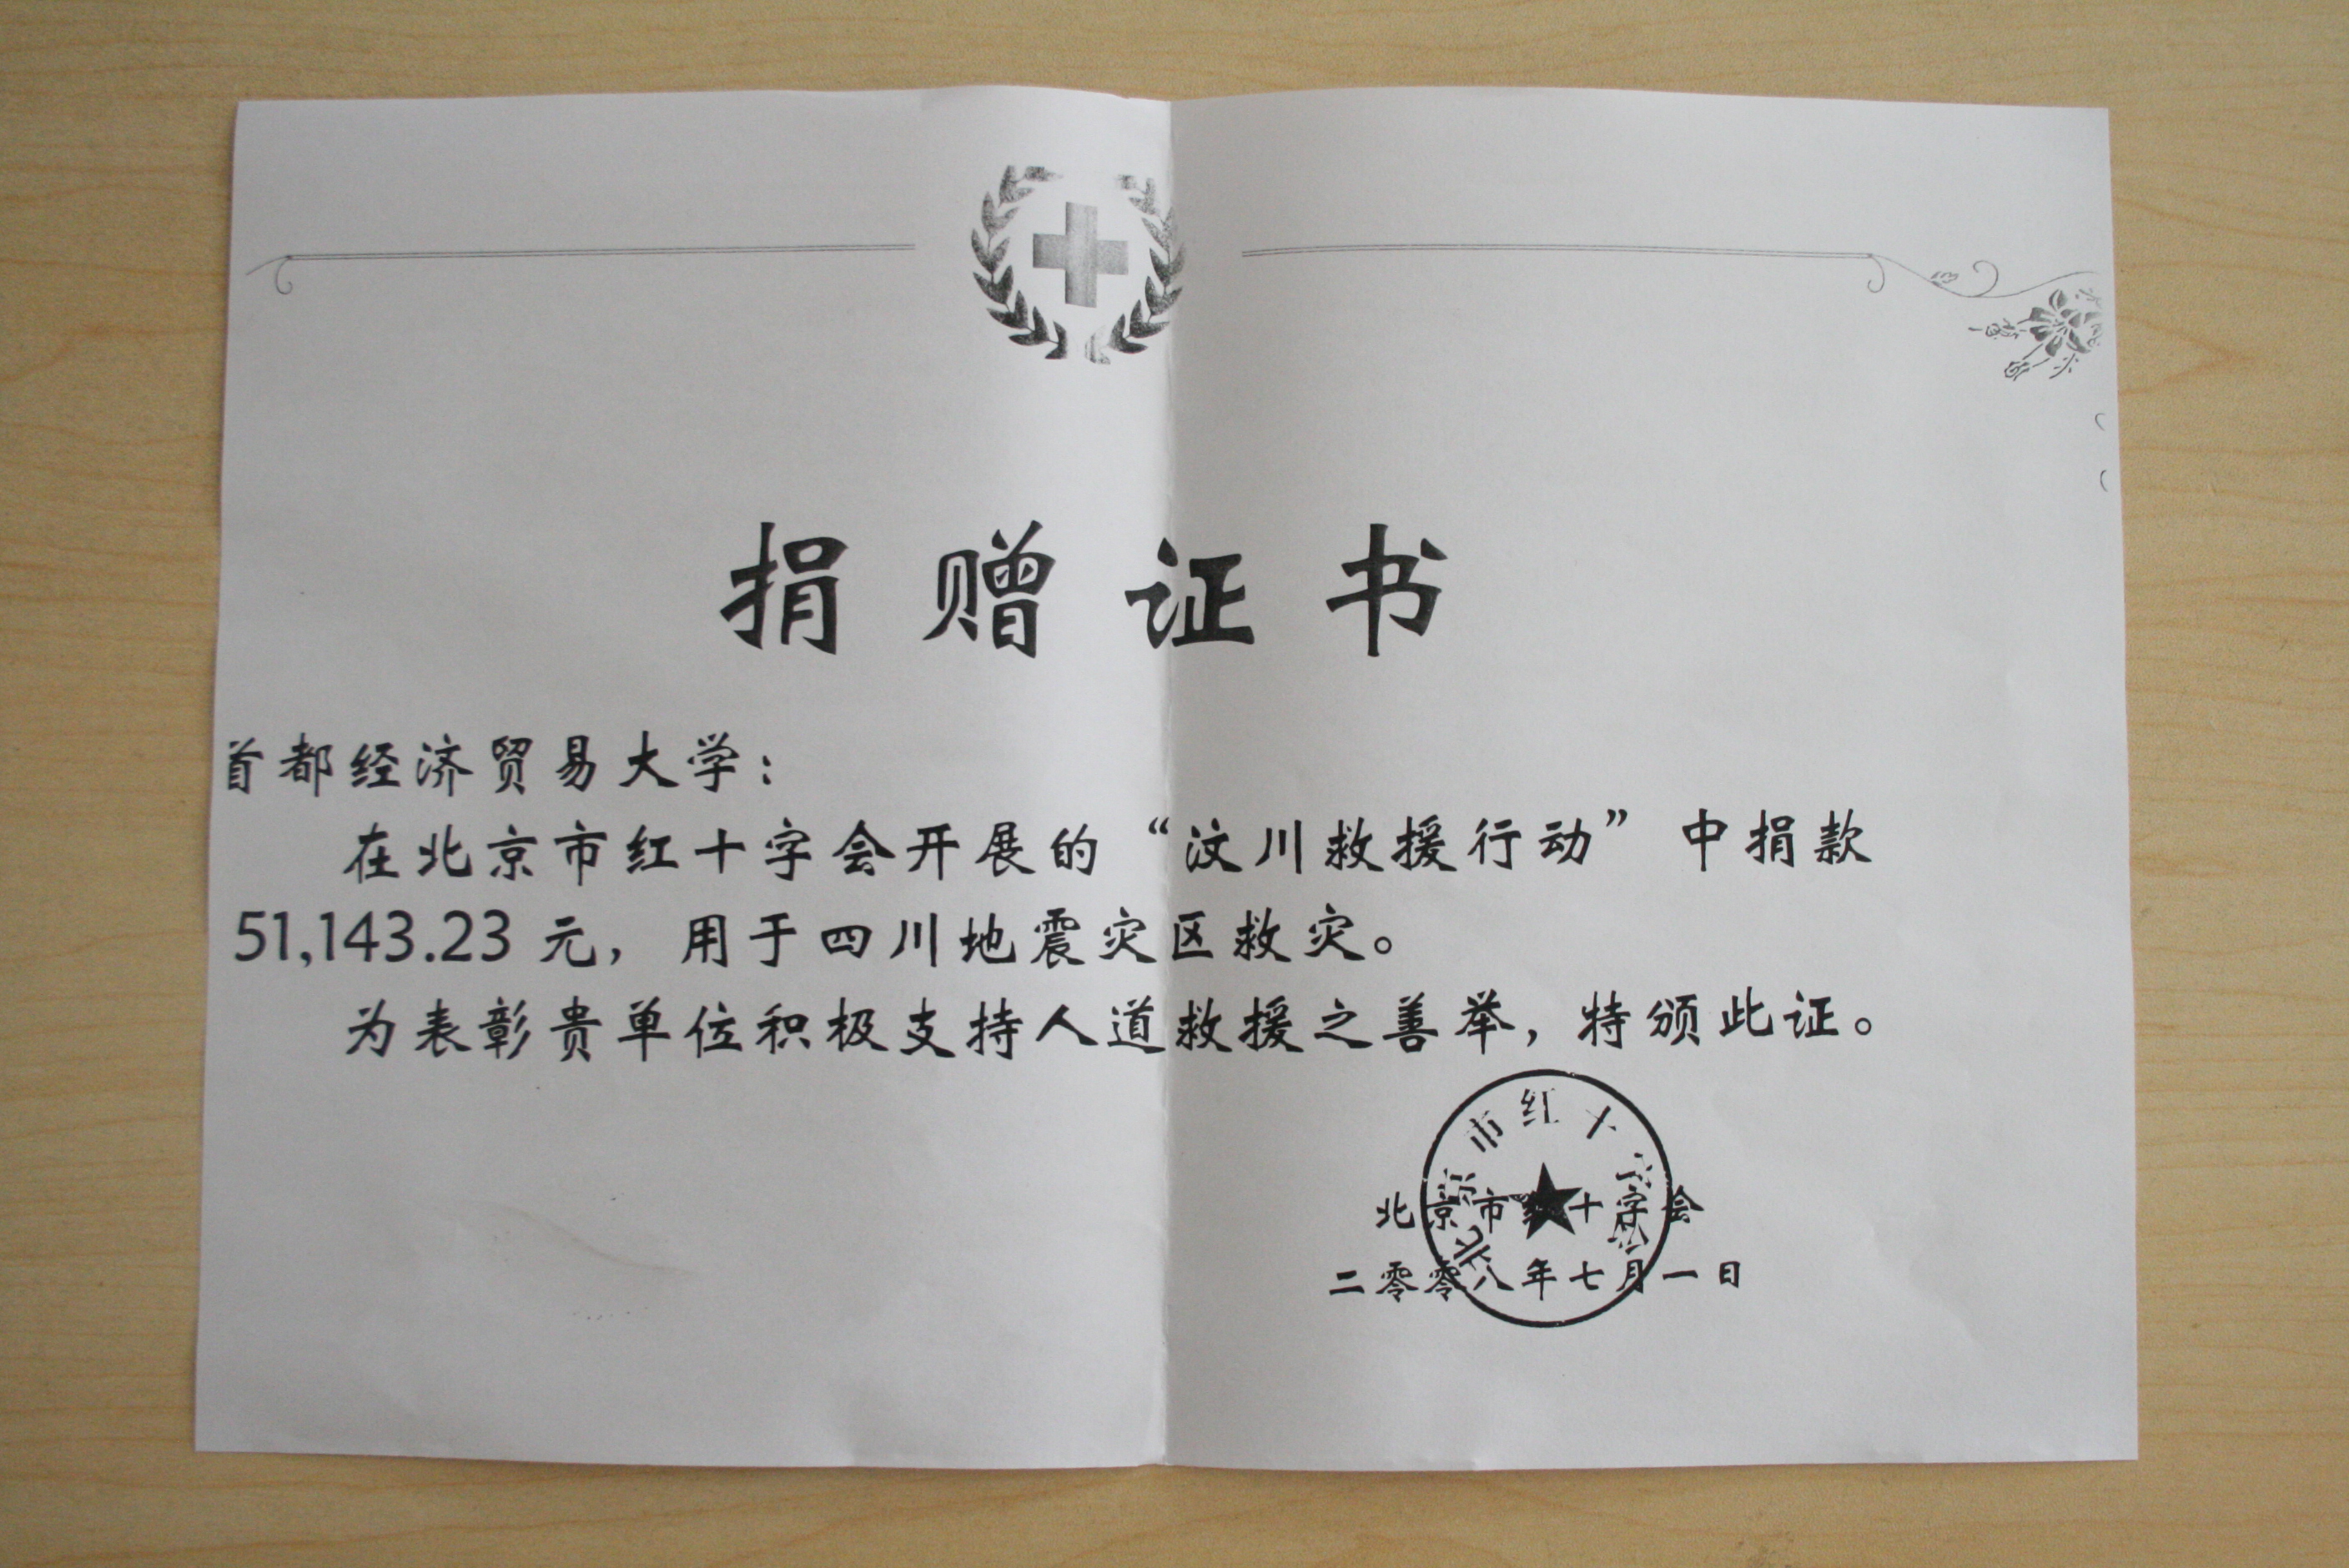 捐赠证书
首都经济贸易大学：
在北京市红十字会开展的“汶川救援行动”中捐款
51,143.23元，用于四川地震灾区救灾。
为表彰贵单位积极支持人道救援之善举，特颁此证。
北京市红十字会
北京市红十字会
二零零八年七月一日